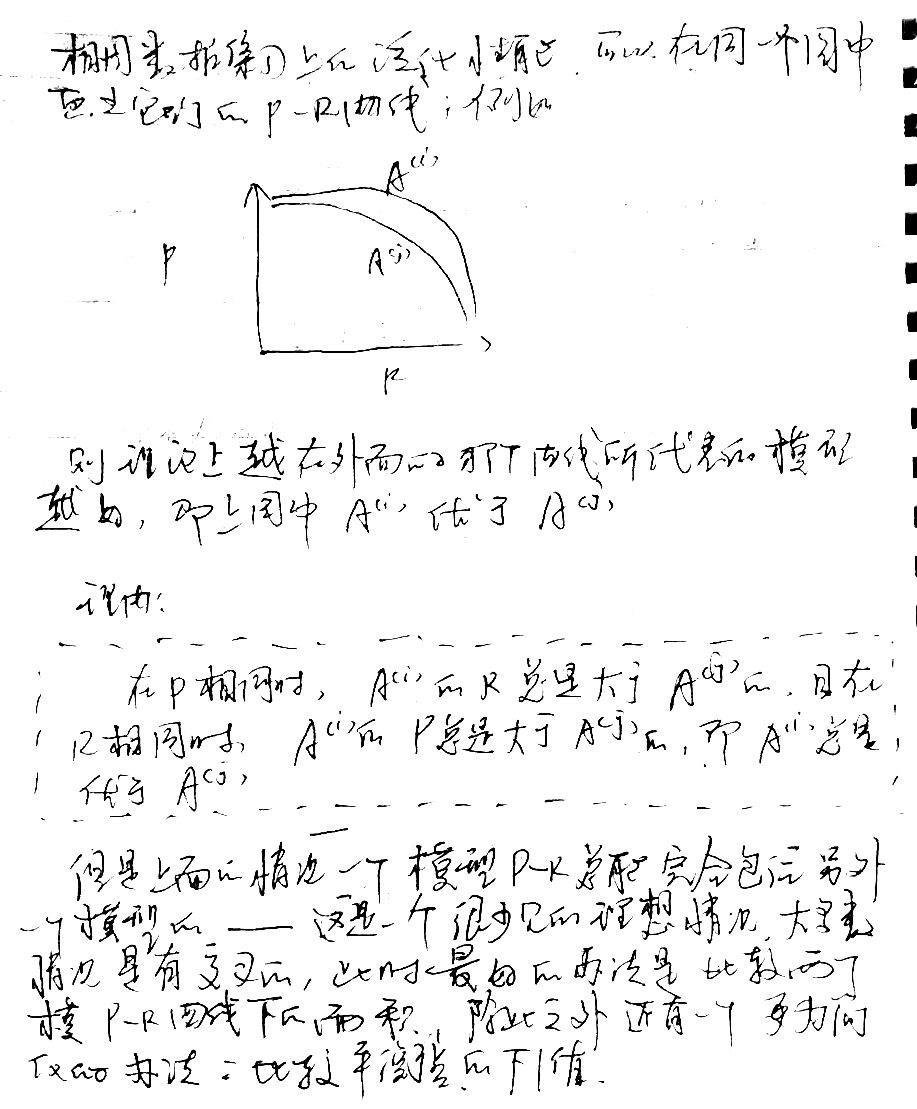 相同数据集上的泛化性能,可以在同一个图中
画出它们的P-R曲线;例如
A⁽ⁱ⁾
P
A⁽ʲ⁾
R
则理论上越在外面的那个曲线所代表的模型
越好,即上图中 A⁽ⁱ⁾ 优于 A⁽ʲ⁾
理由:
在P相同时, A⁽ⁱ⁾的R总是大于 A⁽ʲ⁾的,且在
R相同时, A⁽ⁱ⁾的P总是大于A⁽ʲ⁾的,即A⁽ⁱ⁾总是
优于 A⁽ʲ⁾
但是上面的情况一个模型P-R总能完全包住另外
一个模型的——这是一个很少见的理想情况,大多数
情况是有交叉的,此时最好的办法是比较两个
模 P-R曲线下的面积,除此之外还有一个更为
办法:比较平衡点的F1值.